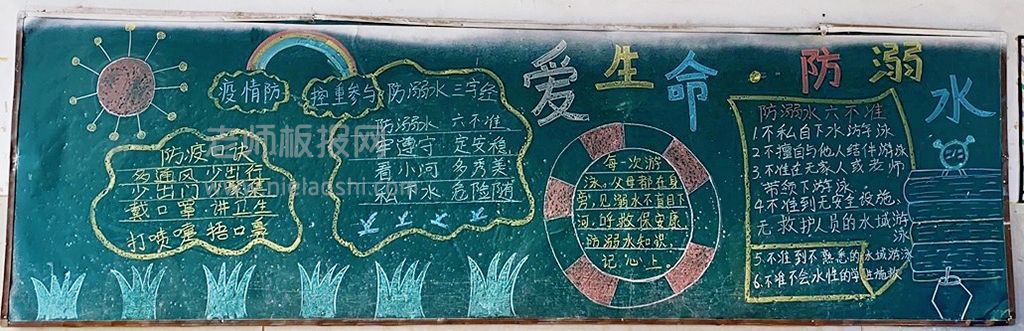 爱生命·防溺水
疫情防控重参与
防疫口诀
多通风 少出行
少出门
戴口罩 讲卫生
打喷嚏 捂口鼻
防溺水三字经
防溺水 六不准
牢遵守 定安稳
看小河 多秀美
私下水 危险随
每一次游
泳,父母都在身
旁,见溺水不盲目下
河,呼救保安康
防溺水知识,
记心上
防溺水六不准
1.不私自下水游泳
2.不擅自与他人结伴游泳
3.不准在无家人或老师
带领下游泳
4.不准到无安全设施、
无救护人员的水域游
泳
5.不准到不熟悉的水域游泳
6.不准不会水性的学生施救
老师板报网